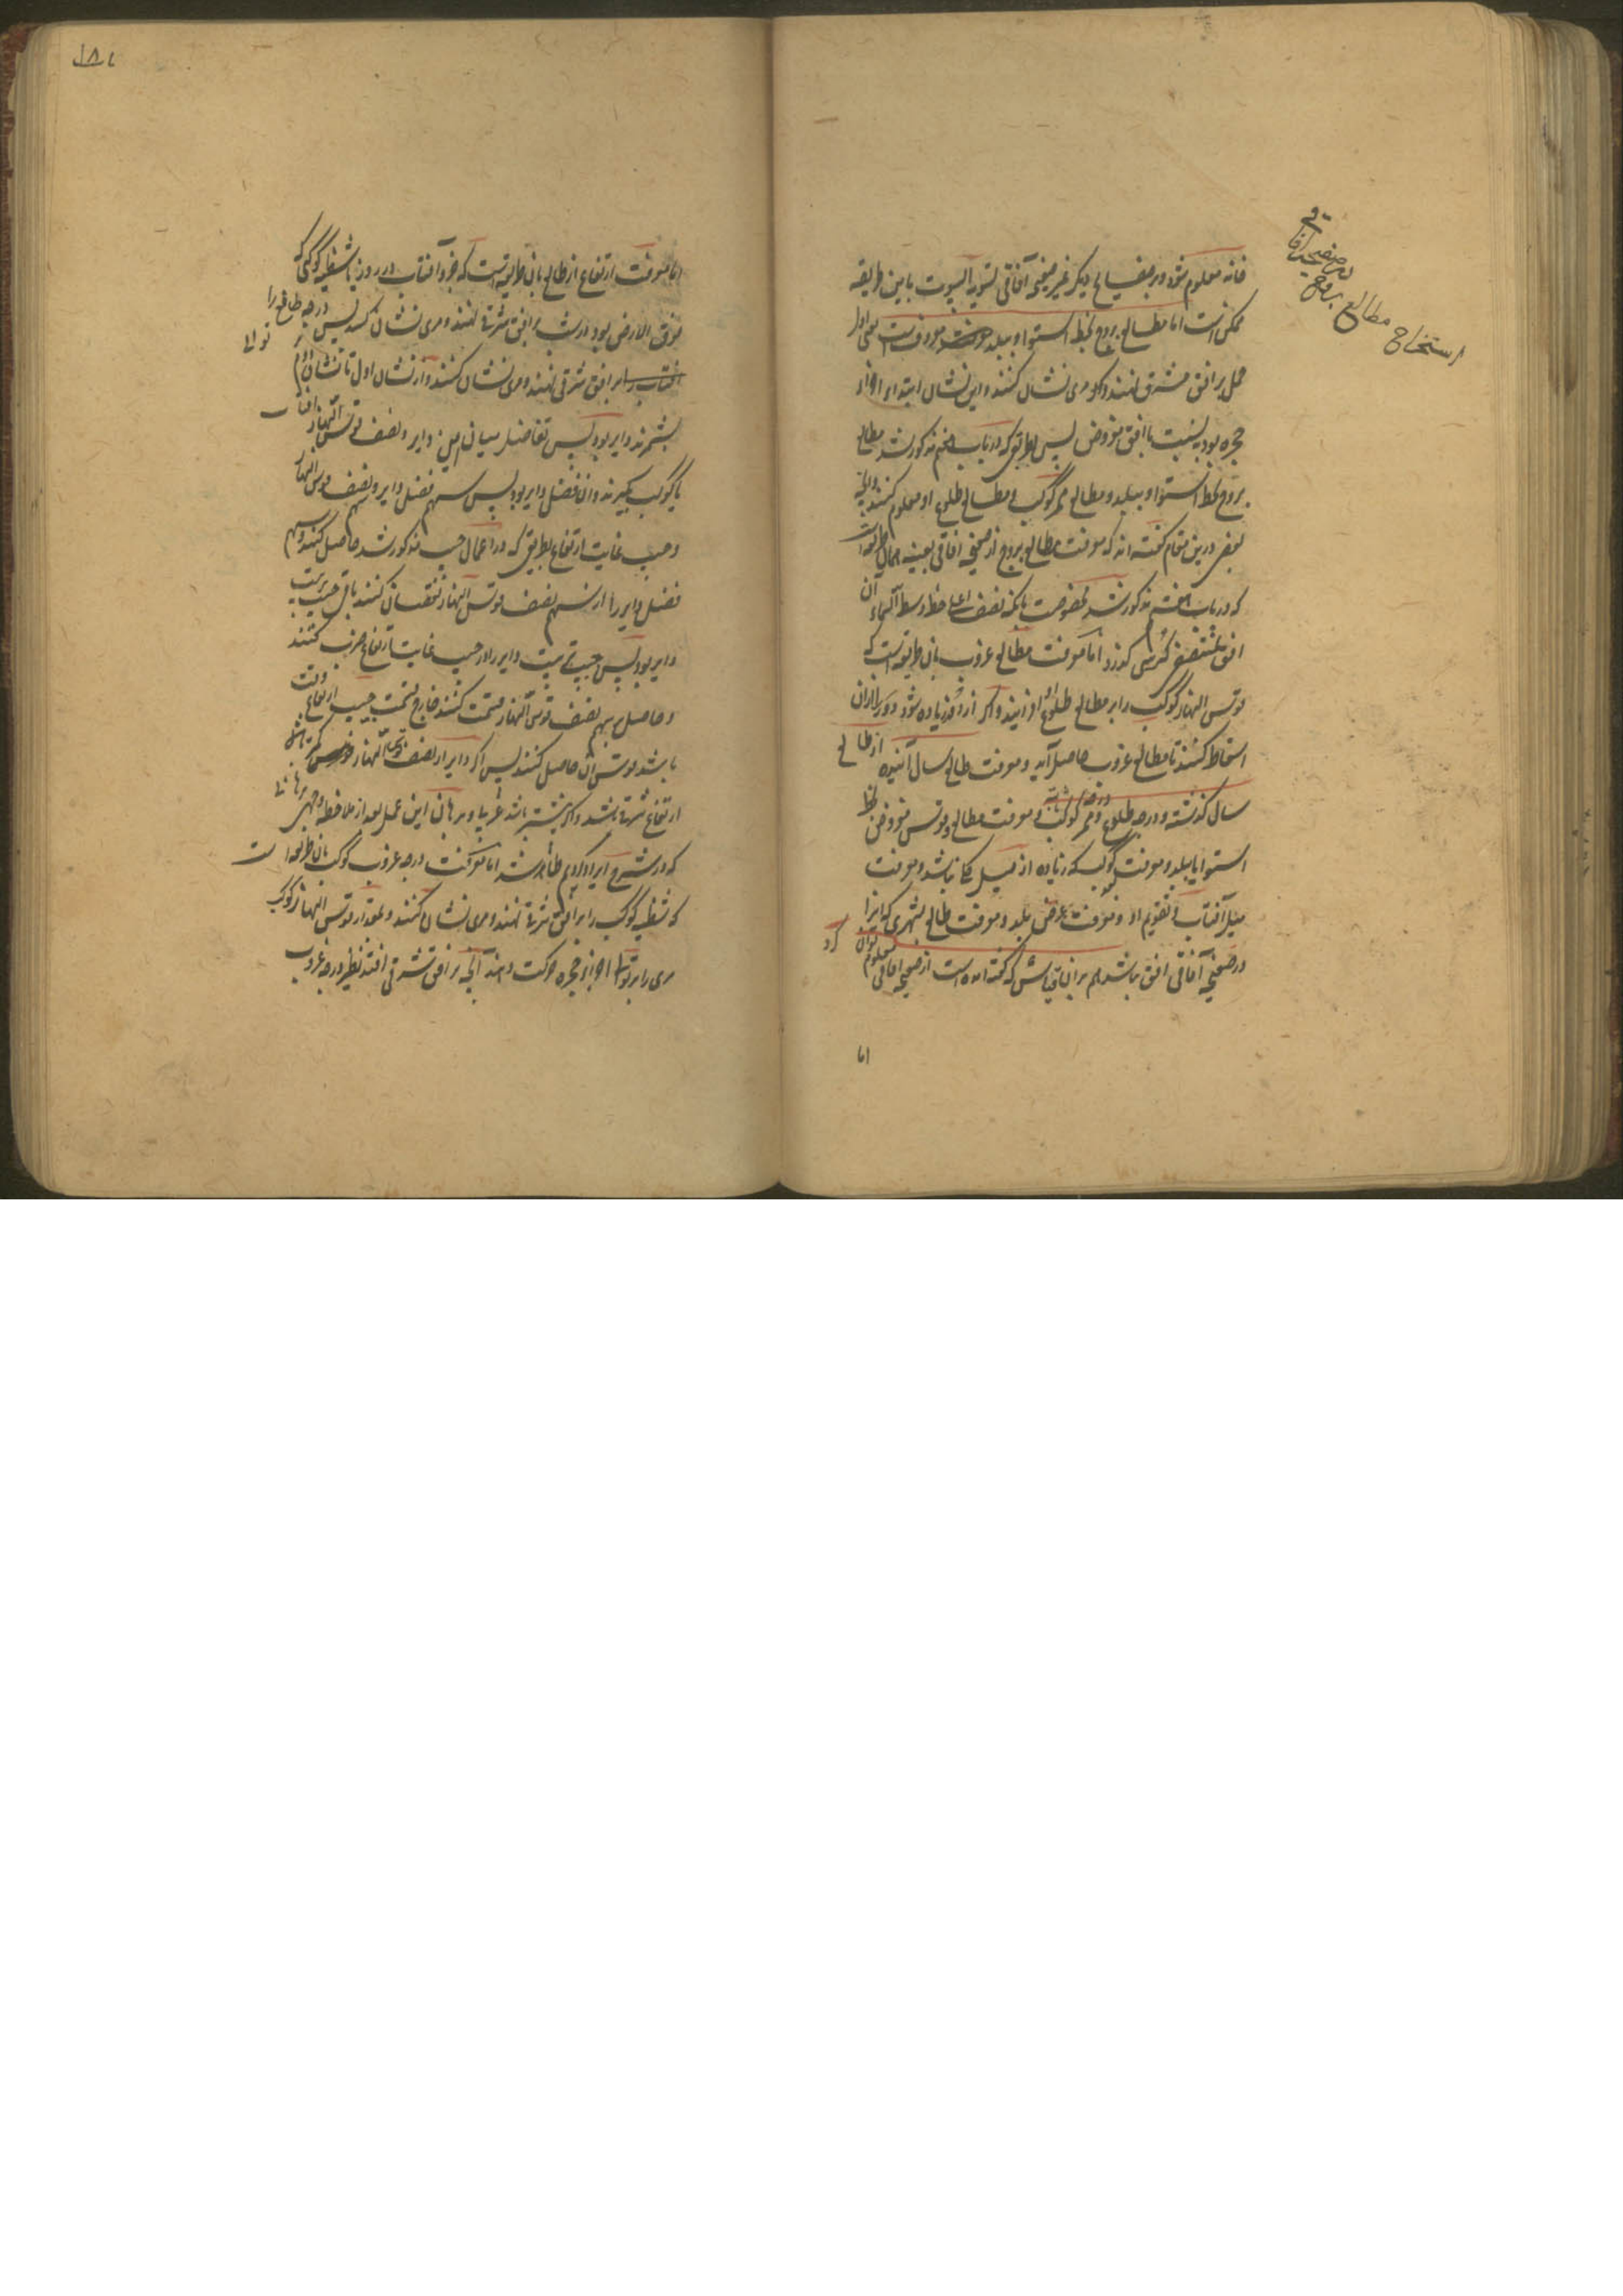 خانه معلوم شود در صفیایح دیگر غیر صفیحه آفاقی تسویة البیوت باین طریقه
ممکن است اما مطالع بروج بخط استوا و ببلد معروف است اول
حمل بر افق مشرق نهند و کو مری نشان کنند و این نشان ابتداء اجزاء
حجره بود به نسبت با افق مفروض پس بطریق که در باب پنجم مذکور شد مطالع
بروج بخط استوا و ببلد و مطالع ممر کوکب و مطالع طلوع او معلوم کنند و آنچه
بعضی درین مقام گفته اند که معرفت مطالع بروج از صفیحه آفاقی بعینه همان طریقه است
که در باب مذکور شد بخصوصت بانکه نصف اعلی خط وسط السماء آن
افق بمنتصف کرسی گذرد اما معرفت مطالع غروب بان طریقه است که
قوس النهار کوکب را بر مطالع طلوع او افزایند و اگر از دور زیاده شود دور را از آن
اسقاط کنند تا مطالع غروب حاصل آید و معرفت طالع سال آینده از طالع
سال گذشته و درجه طلوع و ممر کوکب و معرفت مطالع و قوس مفروض بخط
استوا یا ببلد و معرفت کوکب که زیاده از میل کلی باشد و معرفت
میل آفتاب و تقویم او و معرفت عرض بلد و معرفت طالع بشهری که آنرا
در صفیحه آفاقی افق باشد هم بران قیاس که گفته آمده است از صفیحه آفاقی معلوم توان کرد
اما
استخراج مطالع بروج
از صفیحه آفاقی
اما معرفت ارتفاع از طالع بان طریقه است که جزو آفتاب در روز یا شظیه کوکبی که
فوق الارض بود در شب بر افق شرقی نهند و مری نشان کنند پس درجه طالع را
آفتاب را بر افق شرقی نهند و مری نشان کنند و از نشان اول تا نشان دوم
بشمرند دایر بود پس تفاضل میان دایر و نصف قوس النهار آفتاب
یا کوکب بگیرند و ان فضل دایر بود پس سهم فضل دایر و نصف قوس النهار
و جیب غایت ارتفاع بطریق که در اعمال جیب مذکور شد حاصل کنند و سهم
فضل دایر را از سهم نصف قوس النهار نقصان کنند باقی جیب ترتیب
دایر بود پس جیب ترتیب دایر را در جیب غایت ارتفاع ضرب کنند
و حاصل بر سهم نصف قوس النهار قسمت کنند خارج قسمت جیب ارتفاع وقت
باشد قوس آن حاصل کنند پس اگر دایر از نصف قوس النهار کمتر باشد
ارتفاع شرقی باشد و اگر بیشتر باشد غربی و برهان این عمل بعد از ملاحظه برهانها
که در شرح ایراد کردیم ظاهر شد اما معرفت درجه غروب کوکب بان طریقه است
که شظیه کوکب را بر افق شرقی نهند و مری نشان کنند و بمقدار قوس النهار کوکب
مری را بر توالی اجزاء حجره حرکت دهند آنچه بر افق شرقی افتد نظیر درجه غروب